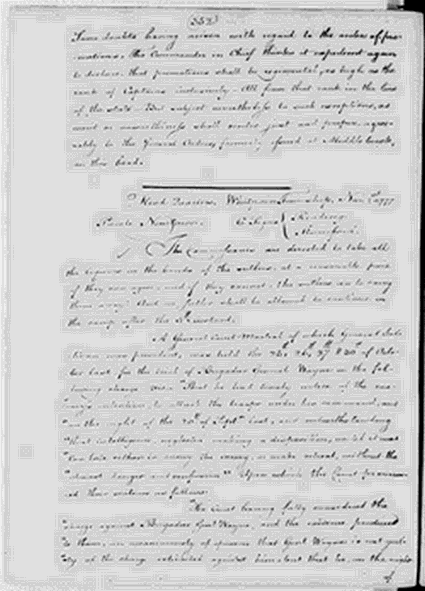 (352)
Some doubts having arisen with regard to the orders of pro-
motions, The Commander in Chief thinks it expedient again
to declare, that promotions shall be regimental, as high as the
rank of Captains inclusively - All from that rank in the line
of the state - But subject nevertheless to such exceptions, as
merit or unworthiness shall render just and proper, agree-
ably to the General Orders, formerly issued at Middle brook,
on this head.
Head Quarters, Whitpain Township, Nov. 1777
Parole C. Signs Reading
The Commissaries are directed to take all
the liquors in the hands of the sutlers, at a reasonable price
if they can agree; and if they cannot, the sutlers are to carry
them away: And no sutler shall be allowed to continue in
the camp after the Instant.
A General Court Martial of which General Sul-
livan was president, was held the 25th, 26th, 27th & 30th of Octo-
ber last for the trial of Brigadier General Wayne on the fol-
lowing charge Viz: "That he had timely notice of the ene-
"my's intention, to attack the troops under his command, and
"on the night of the 20th of Septr last, and notwithstanding
"that intelligence, neglected making a disposition, until it was
"too late either to annoy the enemy, or make retreat, without the
"utmost danger and confusion" Upon which the Court pronounc-
ed their sentence as follows:
"The Court having fully considered the
"charge against Brigadier Genl Wayne, and the evidence produced
"to them, are unanimously of opinion that Genl Wayne is not guil-
"ty of the charge exhibited against him, but that he, on the night
of